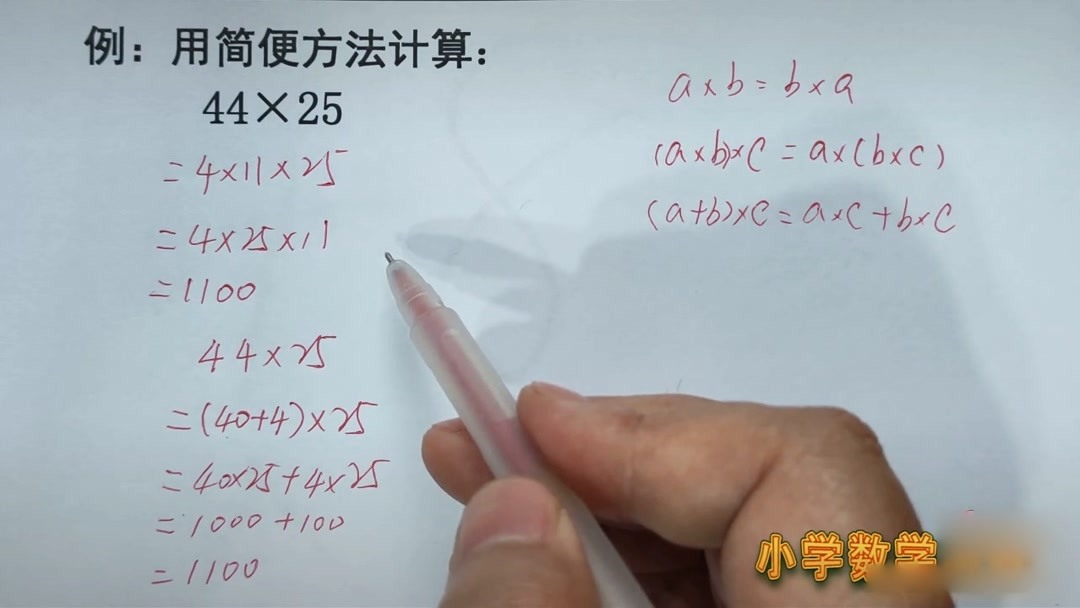 例：用简便方法计算：
44×25
=4×11×25
=4×25×11
=1100
44×25
=(40+4)×25
=40×25+4×25
=1000+100
=1100
a×b=b×a
(a×b)×c=a×(b×c)
(a+b)×c=a×c+b×c
小学数学